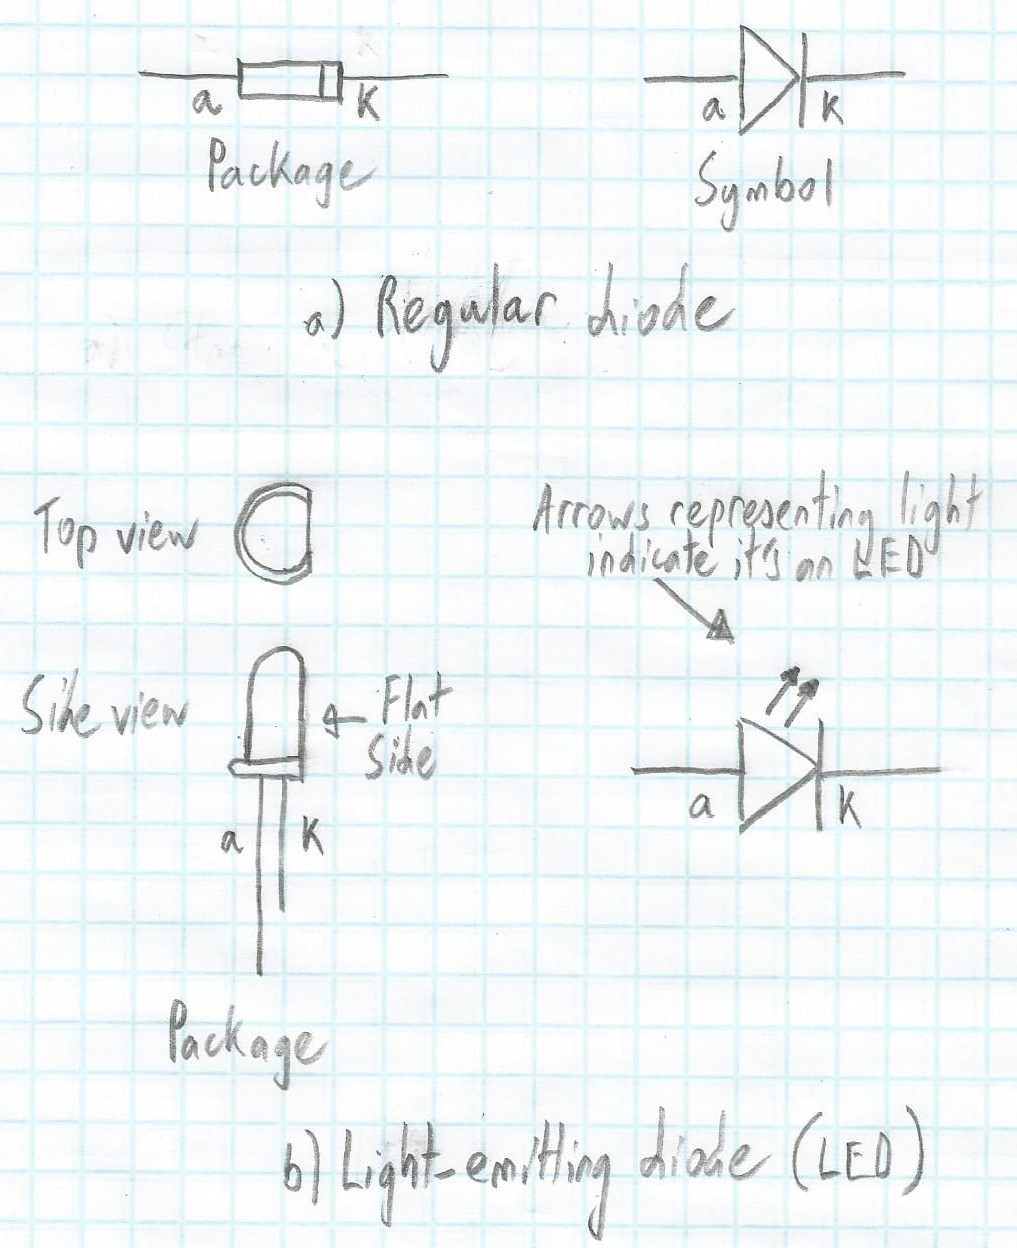 a K a K
Package Symbol
a) Regular diode
Top view
Arrows representing light
indicate it's an LED
Side view
Flat
Side
a K a K
Package
b) Light-emitting diode (LED)